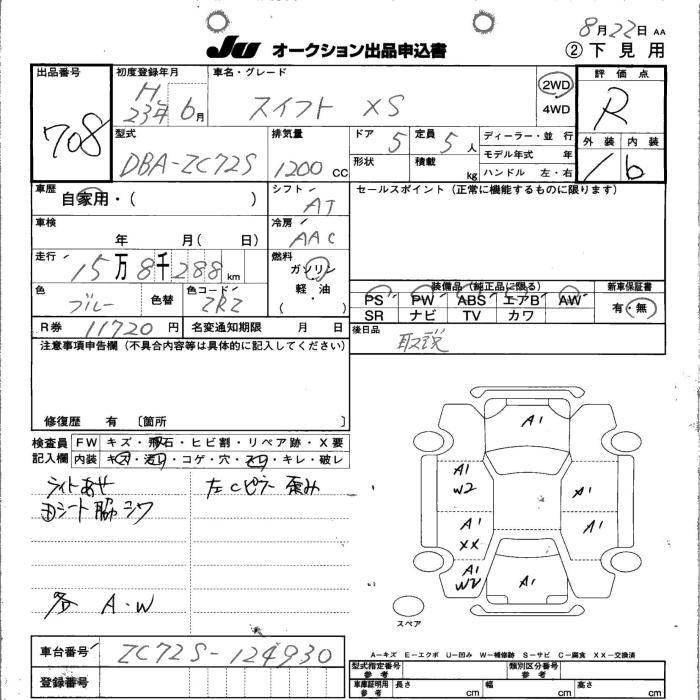 8月22日 AA
JU オークション出品申込書 ②下見用
出品番号 708
初度登録年月 H 23年 6月
車名・グレード スイフト XS
2WD
4WD
評価点 R
外装 内装
1 b
型式 DBA-ZC72S
排気量 1200 CC
ドア 5 定員 5人
形状 積載 kg
ディーラー・並行
モデル年式 年
ハンドル 左・右
車歴 自家用・( )
シフト AT
セールスポイント(正常に機能するものに限ります)
車検 年 月( 日)
冷房 AAC
走行 15万8千288km
燃料 ガソリン・軽油・( )
色 ブルー 色替 色コード ZRZ
装備品(純正品に限る) 新車保証書
PS PW ABS エアB AW 有・無
SR ナビ TV カワ
R券 11720円 名変通知期限 月 日
後日品 取説
注意事項申告欄(不具合内容等は具体的に記入してください)
修復歴 有 〔箇所 〕
検査員記入欄
FW キズ・飛石・ヒビ割・リペア跡・X要
内装 キズ・汚れ・コゲ・穴・スレ・キレ・破レ
ライトあせ 左Cピラー歪み
シート脇シワ
各 A・W
A1
A1
W2
A1
A1
XX
A1
A1
W2
A1
スペア
車台番号 ZC72S-124930
登録番号
A-キズ E-エクボ U-凹み W-補修跡 S-サビ C-腐食 XX-交換済
型式指定番号 参考 類別区分番号 参考
車庫証明用 参考 長さ cm 幅 cm 高さ cm